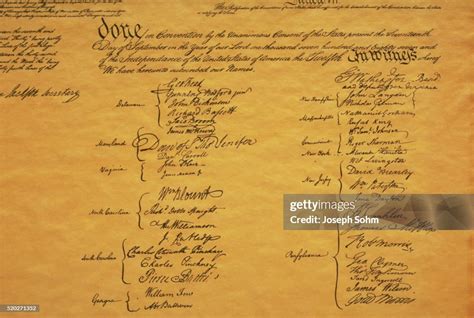 done in Convention by the Unanimous Consent of the States present the Seventeenth
Day of September in the Year of our Lord one thousand seven hundred and Eighty seven and
of the Independance of the United States of America the Twelfth In witness whereof
We have hereunto subscribed our Names,
Delaware
Geo: Read
Gunning Bedford jun
John Dickinson
Richard Bassett
Jaco: Broom
James McHenry
Maryland
Dan of St Thos Jenifer
Danl Carroll
Virginia
John Blair
James Madison Jr
North Carolina
Wm Blount
Richd Dobbs Spaight
Hu Williamson
J. Rutledge
South Carolina
Charles Cotesworth Pinckney
Charles Pinckney
Pierce Butler
Georgia
William Few
Abr Baldwin
G. Washington
New Hampshire
John Langdon
Nicholas Gilman
Nathaniel Gorham
Rufus King
Connecticut
Wm Saml Johnson
Roger Sherman
New York
Wil: Livingston
New Jersey
David Brearley
Wm Paterson
Pensylvania
Robt Morris
Geo. Clymer
James Wilson
Gouv Morris
gettyimages
Credit: Joseph Sohm
520271352